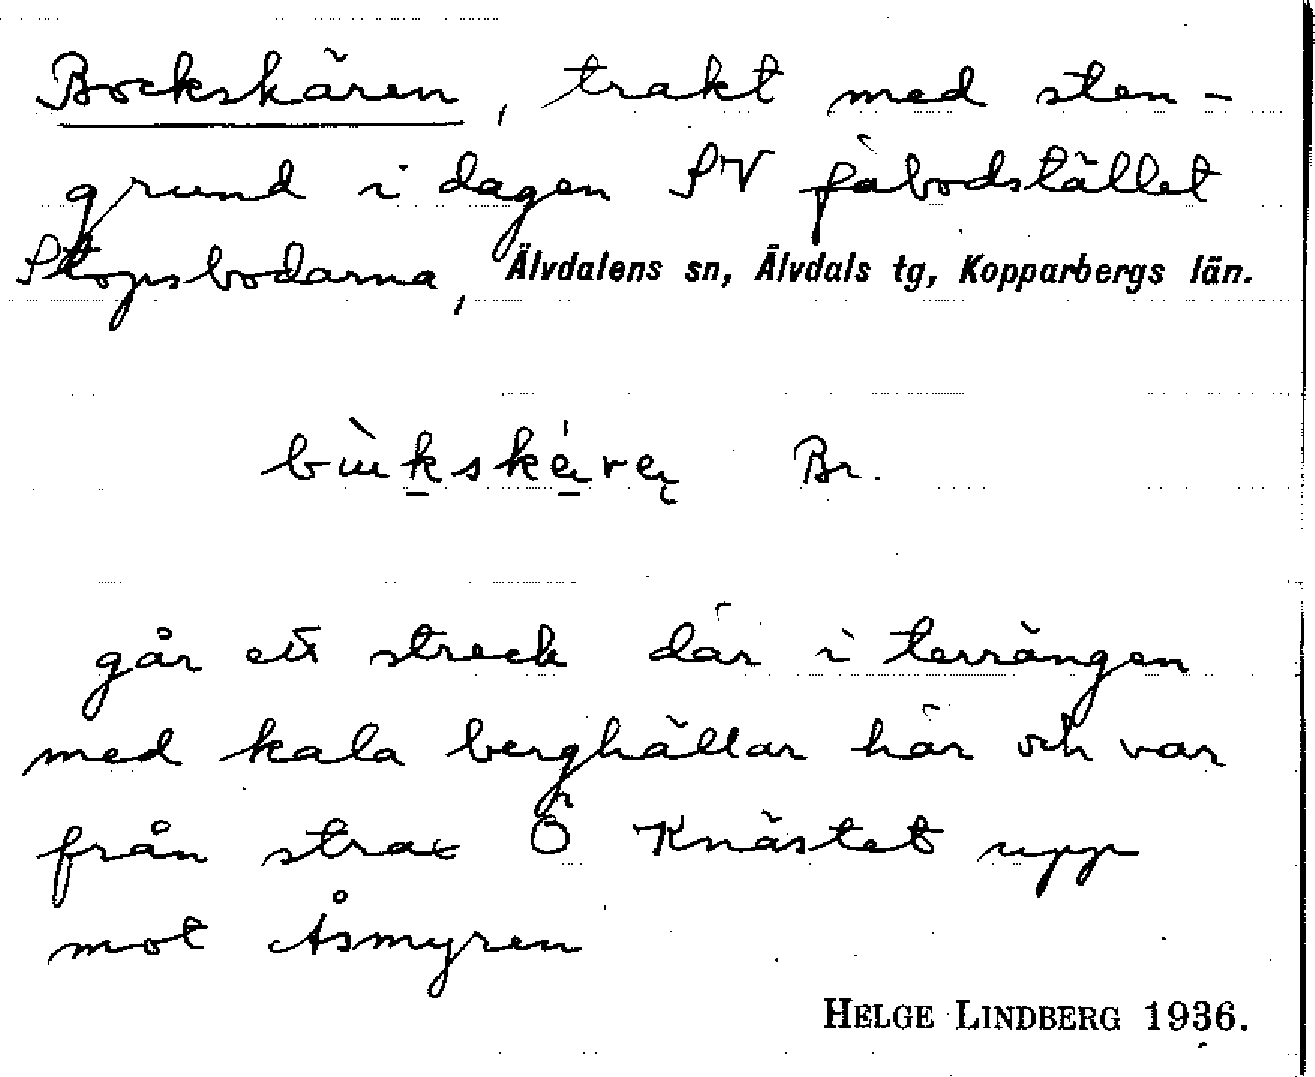 Bockskären, trakt med sten-
grund i dagen SV fäbodstället
Stopsbodarna, Älvdalens sn, Älvdals tg, Kopparbergs län.
Br.
går ett streck där i terrängen
med kala berghällar här och var
från strax Ö Knästet upp
mot Åsmyren
HELGE LINDBERG 1936.